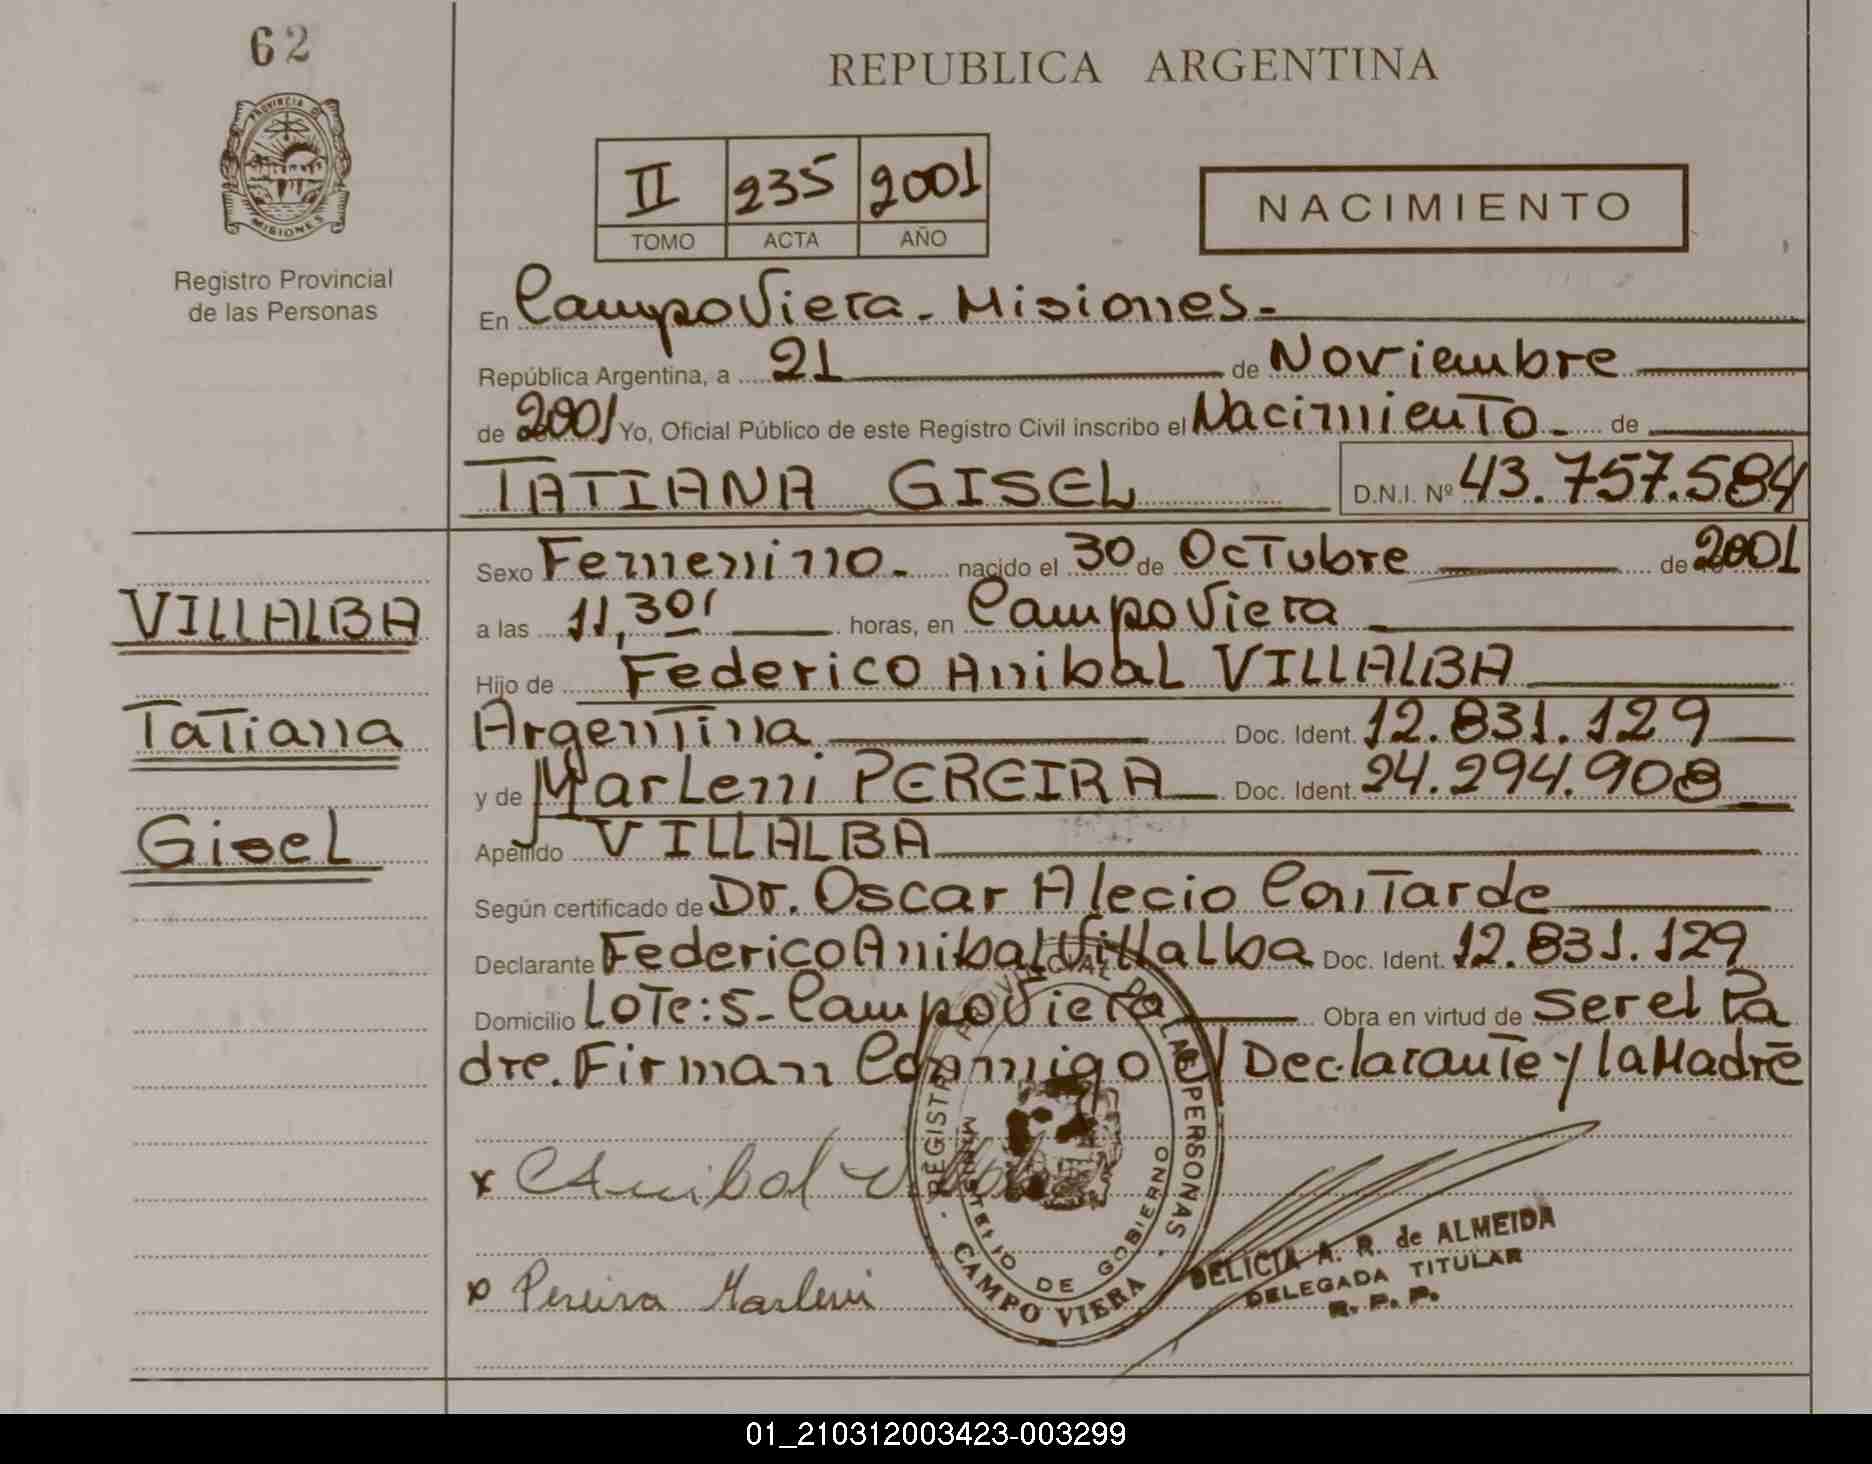 62
REPUBLICA ARGENTINA
PROVINCIA D
MISIONES
Registro Provincial
de las Personas
II 235 2001
TOMO ACTA AÑO
NACIMIENTO
En Campo Viera - Misiones -
República Argentina, a 21 de Noviembre
de 2001 Yo, Oficial Público de este Registro Civil inscribo el Nacimiento - de
TATIANA GISEL D.N.I. Nº 43.757.584
Sexo Femenino - nacido el 30 de Octubre de 2001
a las 11,30' horas, en Campo Viera
Hijo de Federico Anibal VILLALBA
Argentina Doc. Ident. 12.831.129
y de Marleni PEREIRA Doc. Ident. 24.294.908
Apellido VILLALBA
Según certificado de Dr. Oscar Alecio
Declarante Federico Anibal Villalba Doc. Ident. 12.831.129
Domicilio Lote: 5 - Campo Viera Obra en virtud de Ser el Pa
dre. Firman Conmigo el Declarante y la Madre
VILLALBA
Tatiana
Gisel
x Anibal
x Pereira Marleni
REGISTRO PROVINCIAL DE LAS PERSONAS
MINISTERIO DE GOBIERNO
CAMPO VIERA
DELICIA A. R. de ALMEIDA
DELEGADA TITULAR
R. P. P.
01_210312003423-003299